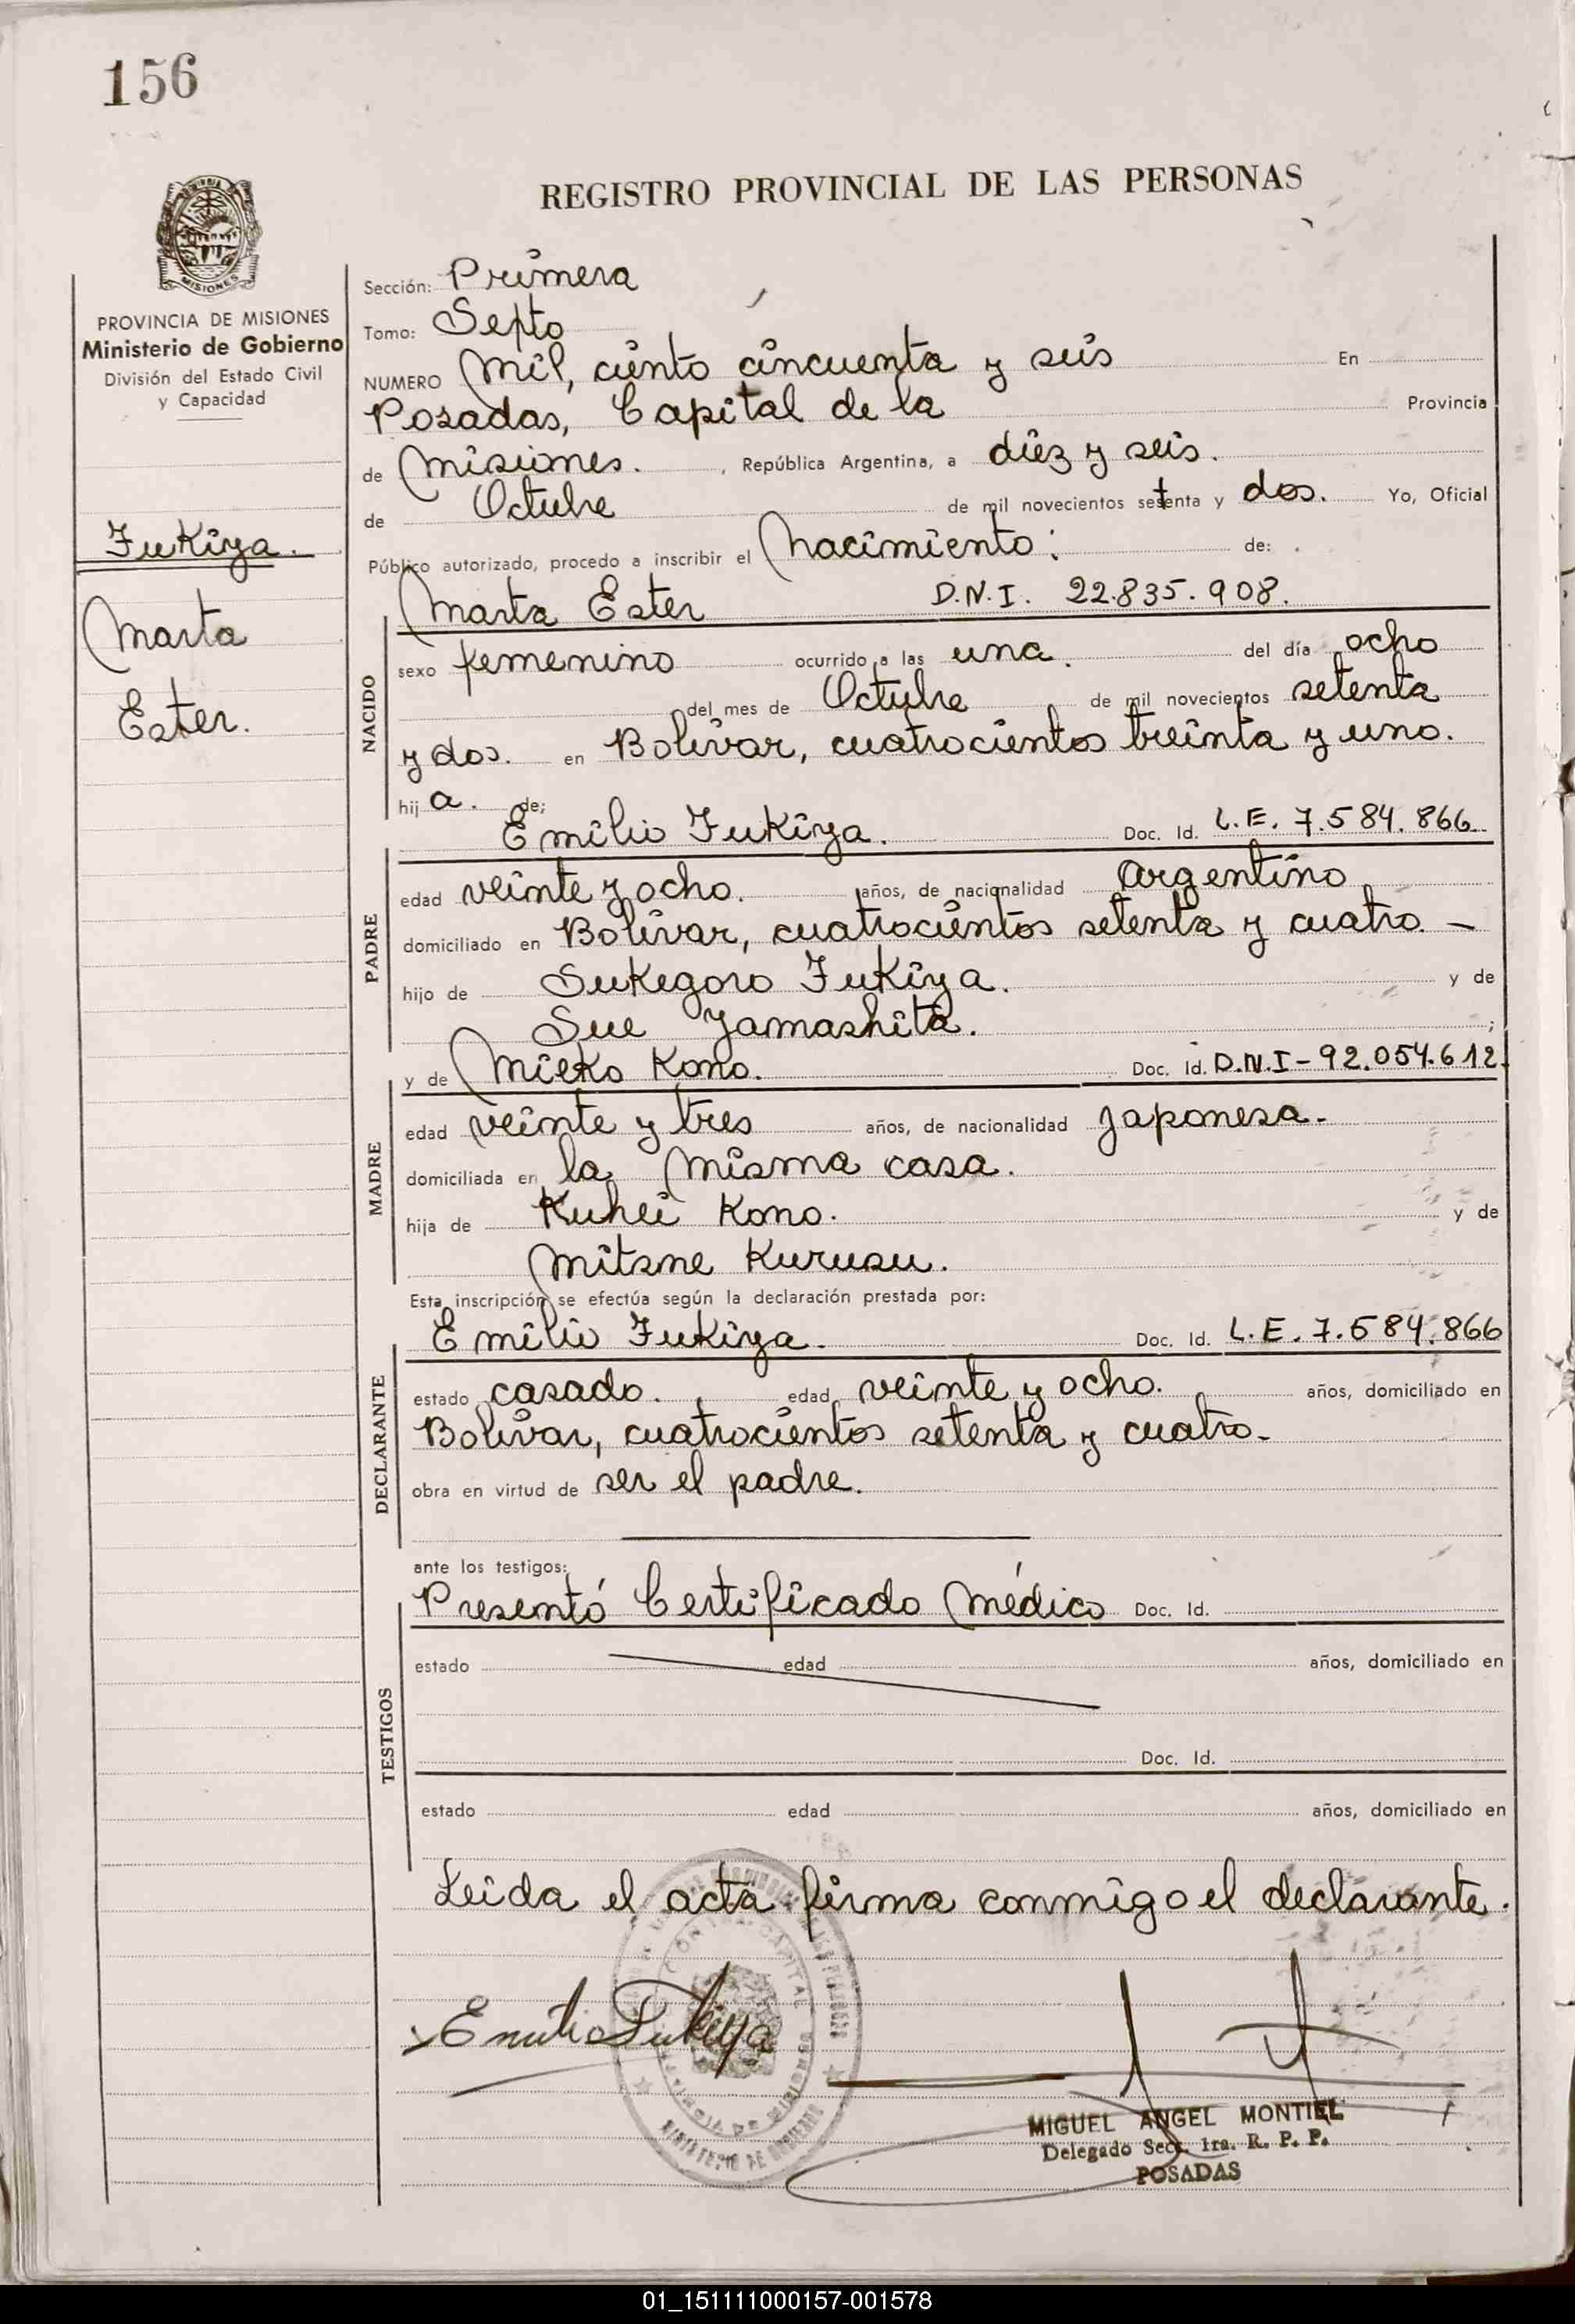 156
REGISTRO PROVINCIAL DE LAS PERSONAS
MISIONES
PROVINCIA DE MISIONES
Ministerio de Gobierno
División del Estado Civil
y Capacidad
Fukiya.
Marta
Ester.
Sección: Primera
Tomo: Septo
NUMERO Mil, ciento cincuenta y seis En
Posadas, Capital de la Provincia
de Misiones. , República Argentina, a diez y seis.
de Octubre de mil novecientos setenta y dos. Yo, Oficial
Público autorizado, procedo a inscribir el Nacimiento: de:
Marta Ester D.N.I. 22.835.908.
NACIDO
sexo femenino ocurrido a las una. del día ocho
del mes de Octubre de mil novecientos setenta
y dos. en Bolívar, cuatrocientos treinta y uno.
hij a. de;
Emilio Fukiya. Doc. Id. L.E. 7.584.866
PADRE
edad veinte y ocho. años, de nacionalidad Argentino
domiciliado en Bolívar, cuatrocientos setenta y cuatro. -
hijo de Sukegoro Fukiya. y de
Sue Yamashita. ;
y de Mieko Kono. Doc. Id. D.N.I-92.054.612.
MADRE
edad veinte y tres años, de nacionalidad Japonesa.-
domiciliada en la misma casa.
hija de Kuhei Kono. y de
Mitsne Kurusu.
Esta inscripción se efectúa según la declaración prestada por:
Emilio Fukiya. Doc. Id. L.E. 7.584.866
DECLARANTE
estado casado. edad veinte y ocho. años, domiciliado en
Bolívar, cuatrocientos setenta y cuatro.-
obra en virtud de ser el padre.
ante los testigos:
Presentó Certificado Médico Doc. Id.
TESTIGOS
estado edad años, domiciliado en
Doc. Id.
estado edad años, domiciliado en
Leida el acta firma conmigo el declarante.
Emilio Fukiya
MINISTERIO DE GOBIERNO
MIGUEL ANGEL MONTIEL
Delegado Secc. 1ra. R. P. P.
POSADAS
01_151111000157-001578